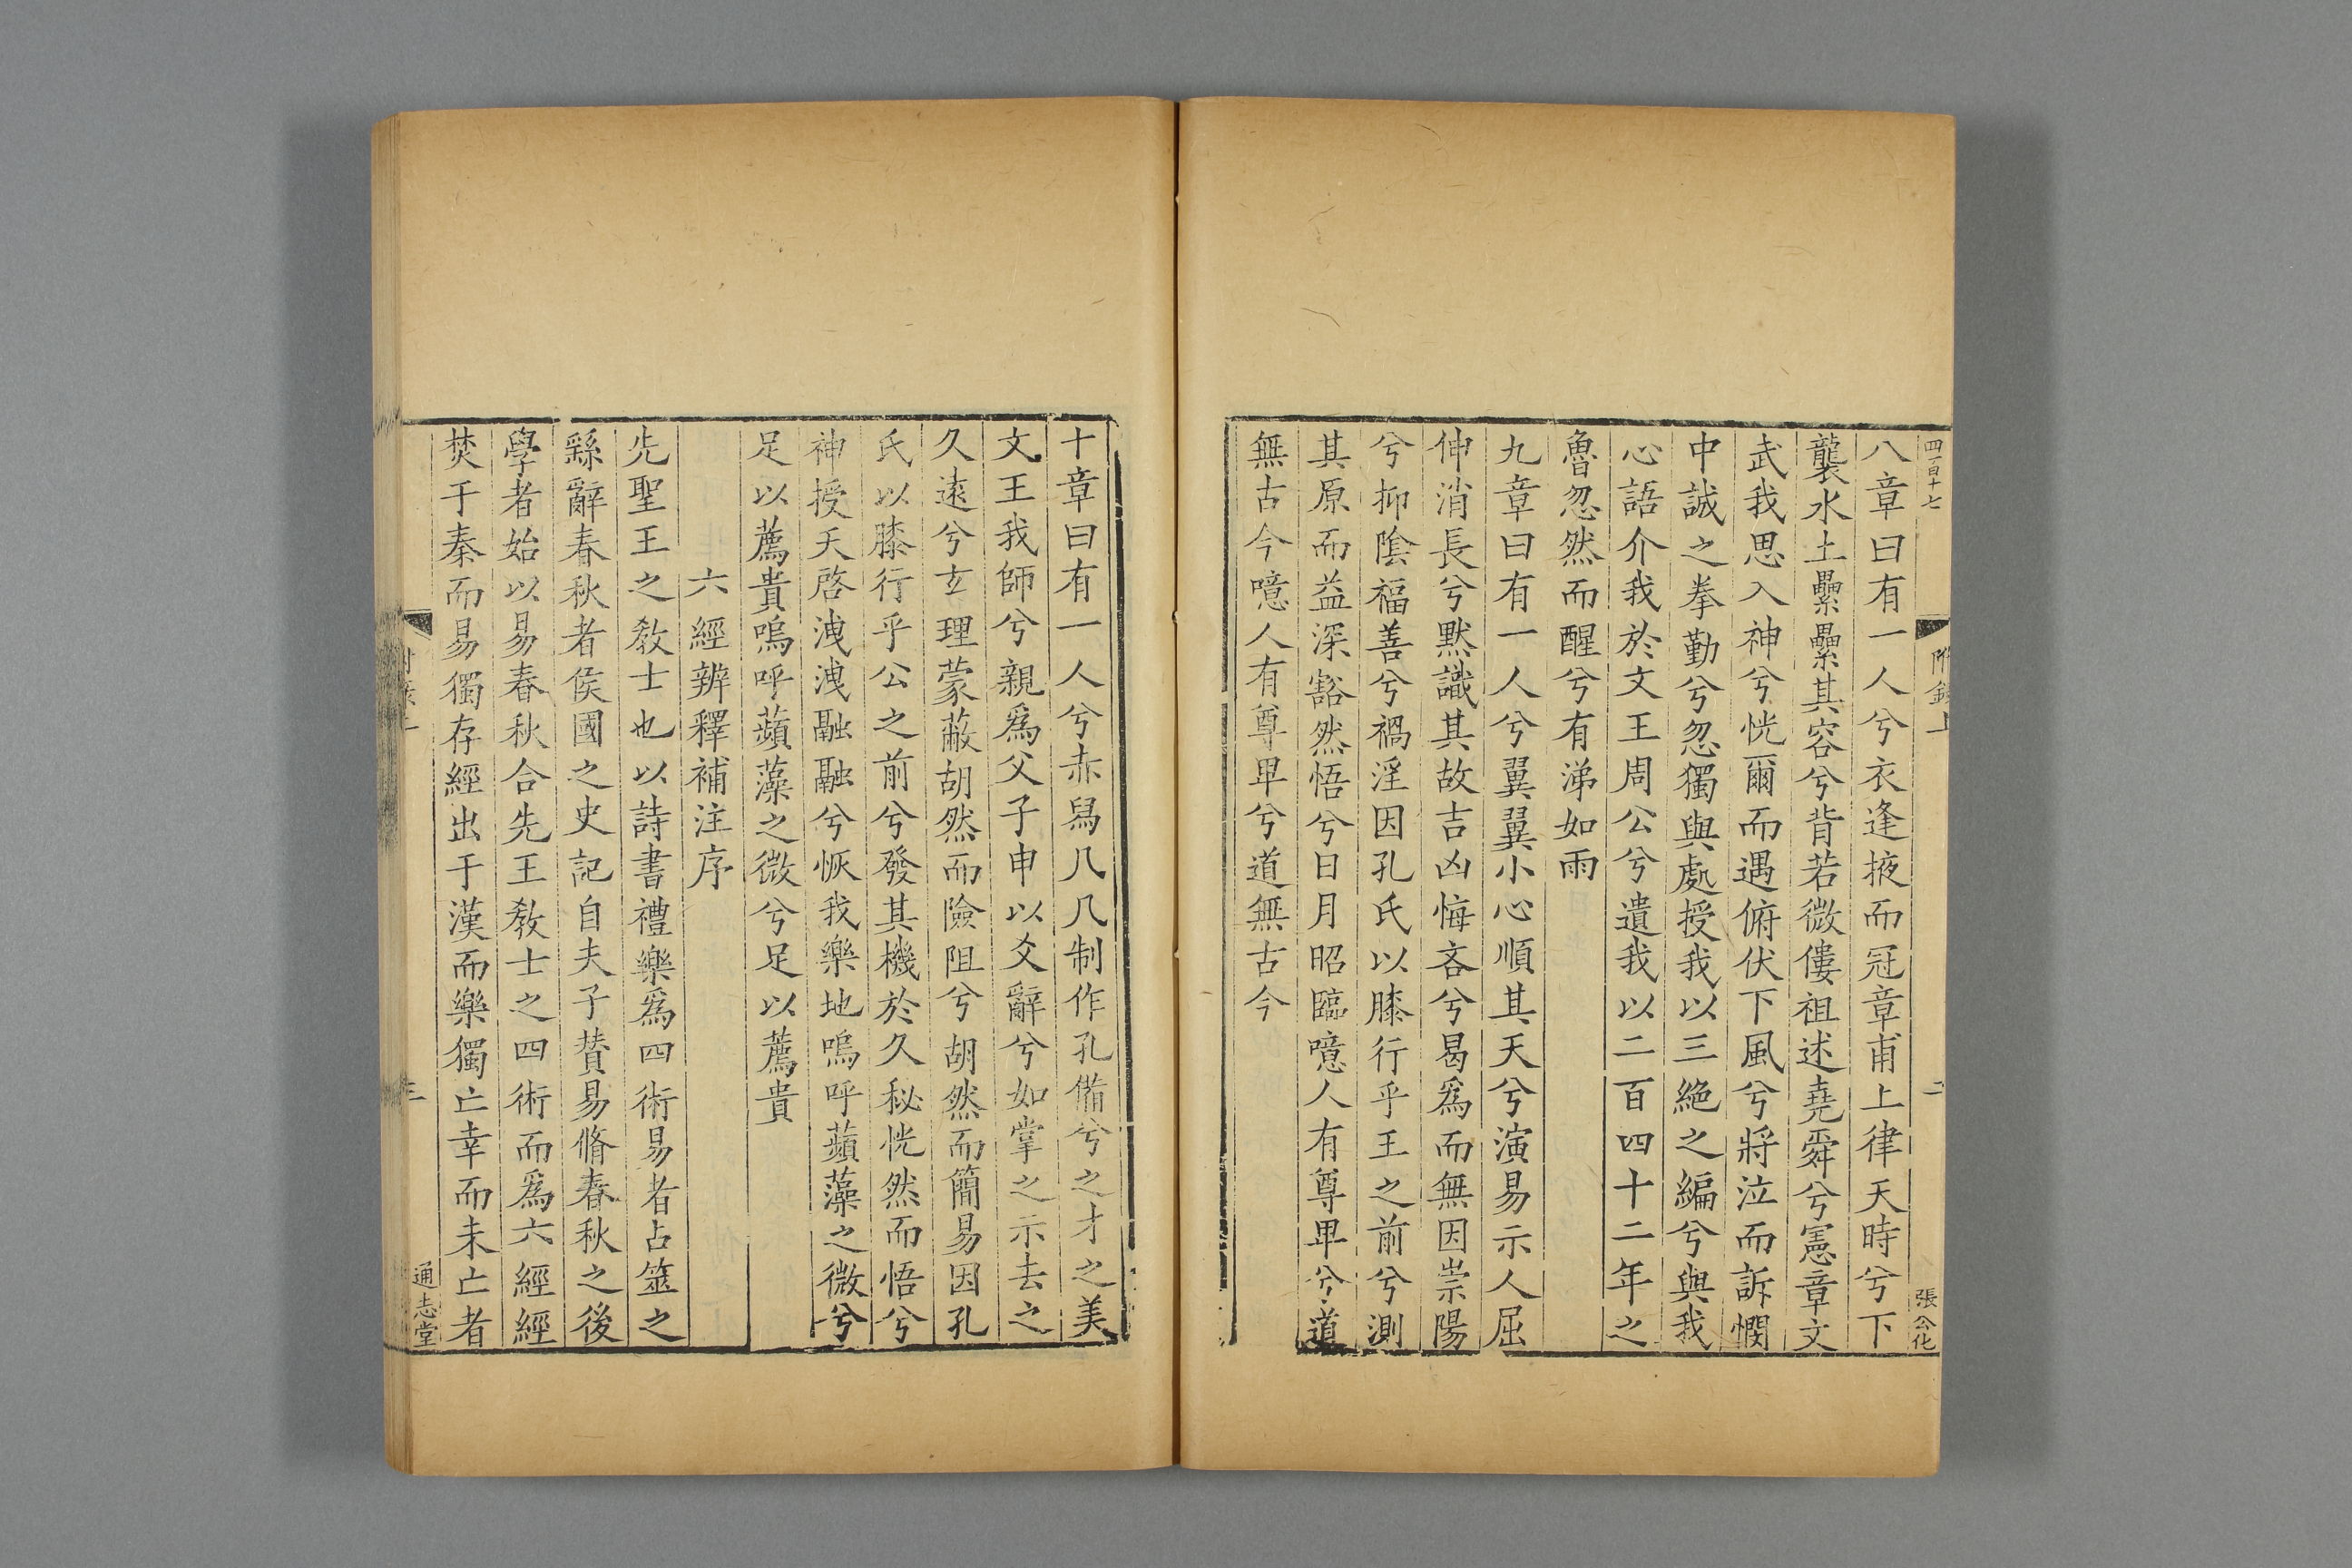 四百十七
附錄上
二
張公化
八章曰有一人兮衣逢掖而冠章甫上律天時兮下
襲水土纍纍其容兮背若微僂祖述堯舜兮憲章文
武我思入神兮恍爾而遇俯伏下風兮將泣而訴憫
中誠之拳勤兮忽獨與處授我以三絕之編兮與我
心語介我於文王周公兮遺我以二百四十二年之
魯忽然而醒兮有涕如雨
九章曰有一人兮翼翼小心順其天兮演易示人屈
伸消長兮默識其故吉凶悔吝兮曷爲而無因崇陽
兮抑陰福善兮禍淫因孔氏以膝行乎王之前兮測
其原而益深豁然悟兮日月昭臨噫人有尊卑兮道
無古今噫人有尊卑兮道無古今
十章曰有一人兮赤舄几几制作孔備兮之才之美
文王我師兮親爲父子申以爻辭兮如掌之示去之
久遠兮玄理蒙蔽胡然而險阻兮胡然而簡易因孔
氏以膝行乎公之前兮發其機於久秘恍然而悟兮
神授天啓洩洩融融兮恢我樂地嗚呼蘋藻之微兮
足以薦貴嗚呼蘋藻之微兮足以薦貴
六經辨釋補注序
先聖王之敎士也以詩書禮樂爲四術易者占筮之
繇辭春秋者侯國之史記自夫子贊易脩春秋之後
學者始以易春秋合先王敎士之四術而爲六經經
焚于秦而易獨存經出于漢而樂獨亡幸而未亡者
三
通志堂